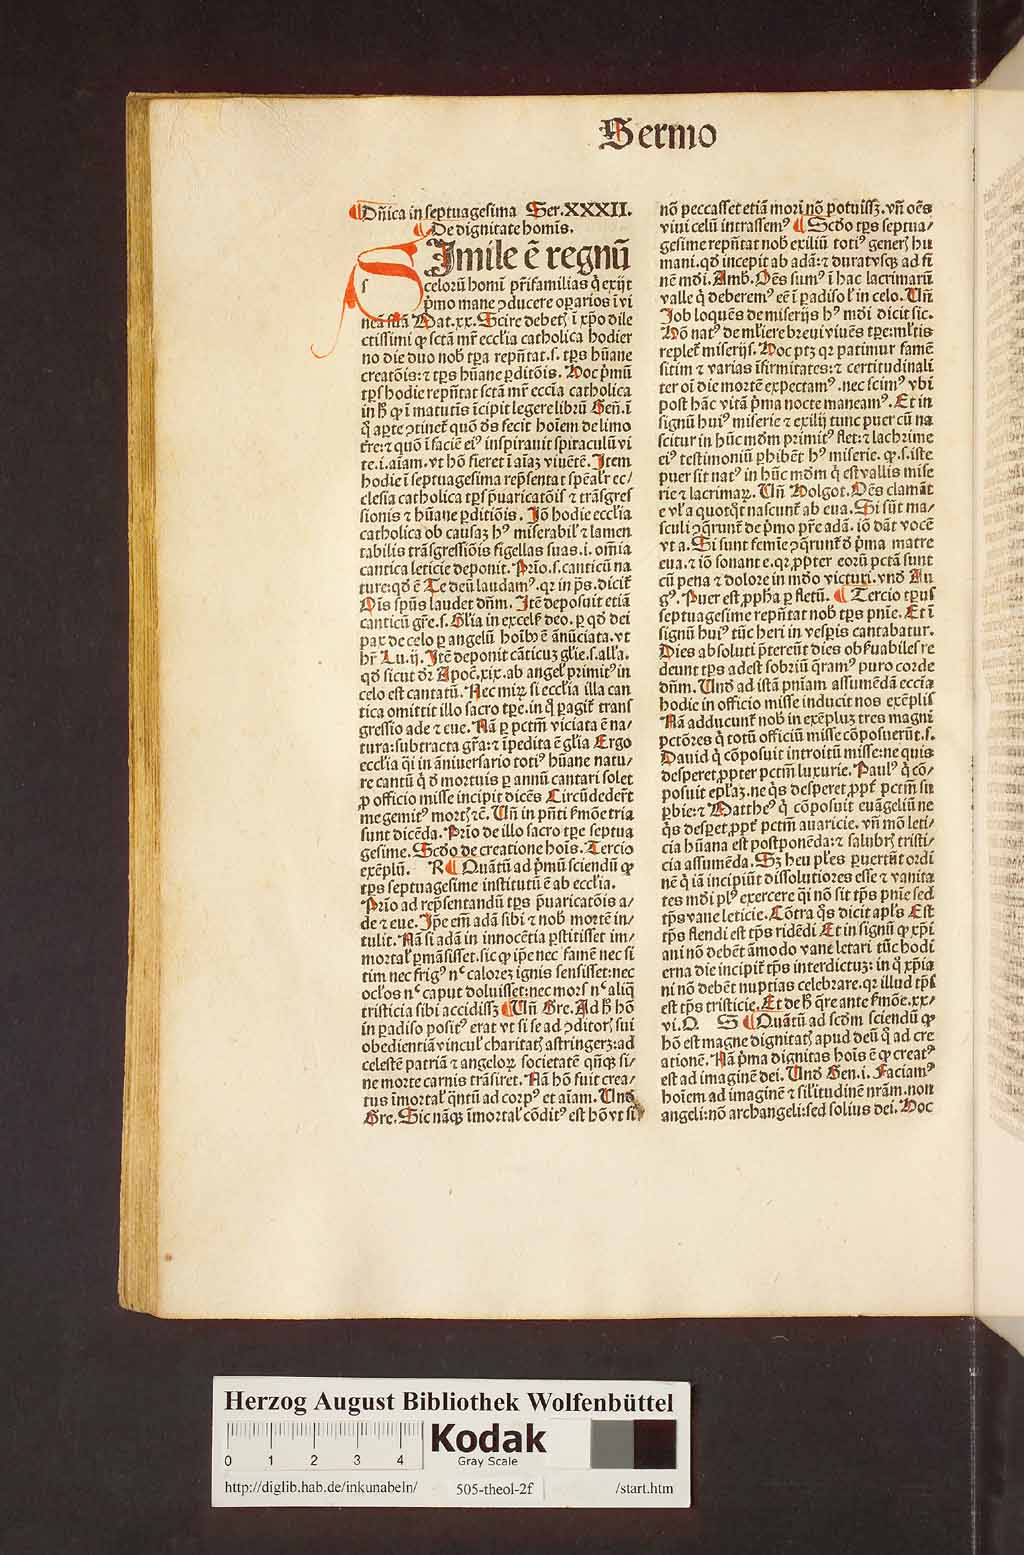 Sermo
¶Dñica in septuagesima Ser.XXXII.
¶De dignitate homĩs.
SJmile ẽ regnũ
celorũ homĩ pr̃ifamilias q̃ exijt
p̃mo mane ꝯducere oꝑarios ĩ vi
neã suã Mat.xx. Scire debetꝭ ĩ xp̃o dile
ctissimi ꝙ sctã mr̃ ecclĩa catholica hodier
no die duo nob̃ tꝑa rep̃ntat.s. tꝑs hũane
creatõis:⁊ tꝑs hũane ꝑditõis. Hoc p̃mũ
tꝑs hodie rep̃ntat sctã mr̃ ecclĩa catholica
in h̃ ꝙ ĩ matutĩs ĩcipit legere librũ Geñ. ĩ
q̃ aꝑte ꝯtinet̃ quõ d̃s fecit hoĩem de limo
tr̃e:⁊ quõ ĩ faciẽ eiꝰ inspirauit spiraculũ vi
te.i.aĩam.vt hõ fieret ĩ aĩaʒ viuẽtẽ. Jtem
hodie ĩ septuagesima rep̃sentat sp̃eal̃r ec/
clesia catholica tꝑs p̃uaricatõis ⁊ trãsgres
sionis ⁊ hũane ꝑditiõis. Jõ hodie ecclĩa
catholica ob causaʒ hꝰ miserabil̃ ⁊ lamen
tabilis trãsgressiõis figellas suas.i. om̃ia
cantica leticie deponit. Prĩo.s.canticũ na
ture:qd̃ ẽ Te deũ laudamꝰ.qꝛ in p̃s.dicit̃
Oĩs sp̃us laudet dñm. Jtẽ deposuit etiã
canticũ gr̃e.s. Gl̃ia in excels̃ deo. ꝑ qd̃ dei
pax de celo ꝑ angelũ hoĩbꝰ ẽ ãnũciata.vt
hr̃ Lu.ij. Jtẽ deponit cãticuʒ gl̃ie.s.all̃a.
qd̃ sicut dr̃ Apoc̃.xix.ab angel̃ primitꝰ in
celo est cantatũ. Nec mirꝝ si ecclĩa illa can
tica omittit illo sacro tꝑe.in q̃ ꝑagit̃ trans
gressio ade ⁊ eue. Nã ꝑ pctm̃ viciata ẽ na/
tura:subtracta gr̃a:⁊ ĩpedita ẽ gl̃ia Ergo
ecclĩa q̃i in ãniuersario totiꝰ hũane natu/
re cantũ q̃ d̃ mortuis ꝑ annũ cantari solet
ꝓ officio misse incipit dicẽs Circũdeder̃t
me gemitꝰ mortꝭ ⁊c̃. Vñ in p̃nti s̃mõe tria
sunt dicẽda. Prĩo de illo sacro tꝑe septua
gesime. Scd̃o de creatione hoĩs. Tercio
exẽplũ. R ¶Quãtũ ad p̃mũ sciendũ ꝙ
tꝑs septuagesime institutũ ẽ ab ecclĩa.
Prĩo ad rep̃sentandũ tꝑs p̃uaricatõis a/
de ⁊ eue. Jp̃e em̃ adã sibi ⁊ nob̃ mortẽ in/
tulit. Nã si adã in innocẽtia ꝑstitisset im/
mortal̃ ꝑmãsisset.sic ꝙ ip̃e nec famẽ nec si
tim nec frigꝰ nᶜ caloreʒ ignis sensisset:nec
oc̃los nᶜ caput doluisset:nec mors nᶜ aliq̃
tristicia sibi accidissʒ ¶Vñ Gre. Ad h̃ hõ
in ꝑadiso positꝰ erat vt si se ad ꝯditorꝭ sui
obedientiã vincul̃ charitatꝭ astringerʒ:ad
celestẽ patriã ⁊ angeloꝝ societatẽ qñqʒ si/
ne morte carnis trãsiret. Nã hõ fuit crea/
tus ĩmortal̃ q̃ntũ ad corpꝰ et aĩam. Vnd̃
Gre. Sic nãqʒ ĩmortal̃ cõditꝰ est hõ vt si
nõ peccasset etiã mori nõ potuissʒ. vñ oẽs
viui celũ intrassemꝰ ¶Scd̃o tꝑs septua/
gesime rep̃ntat nob̃ exiliũ totiꝰ generꝭ hu
mani.qd̃ incepit ab adã:⁊ duratvsqʒ ad fi
nẽ mũdi. Amb̃. Oẽs sumꝰ ĩ hac lacrimarũ
valle q̃ deberemꝰ eẽ ĩ ꝑadiso l̃ in celo. Vñ
Job loquẽs de miserijs hꝰ mũdi dicit sic.
Hõ natꝰ de mliere breui viuẽs tꝑe:ml̃tis
replet̃ miserijs. Hoc ptʒ qꝛ patimur famẽ
sitim ⁊ varias ĩfirmitates:⁊ certitudinali
ter oĩ die mortẽ expectamꝰ.nec scimꝰ vbĩ
post hãc vitã p̃ma nocte maneamꝰ. Et in
signũ huiꝰ miserie ⁊ exilij tunc puer cũ na
scitur in hũc mũdm primitꝰ flet:⁊ lachrime
eiꝰ testimoniũ ꝑhibẽt hꝰ miserie. ꝙ.s.iste
puer sit natꝰ in hũc mũdm q̃ est vallis mise
rie ⁊ lacrimaꝝ. Vñ Holgot. Oẽs clamãt
e vl̃ a quotqt̃ nascunt̃ ab eua. Si sũt ma/
sculi ꝯq̃runt̃ de p̃mo pr̃e adã.iõ dãt vocẽ
vt a. Si sunt femie ꝯq̃runt̃ d̃ p̃ma matre
eua.⁊ iõ sonant e.qꝛ ꝓpter eorũ pctã sunt
cũ pena ⁊ dolore in mũdo victuri.vnd̃ Au
gꝰ. Puer est ꝓph̃a ꝑ fletũ. ¶Tercio tꝑus
septuagesime rep̃ntat nob̃ tꝑs pñie. Et ĩ
signũ huiꝰ tũc heri in vesp̃is cantabatur.
Dies absoluti p̃tereũt dies obs̃uabiles re
deunt tꝑs adest sobriũ q̃ramꝰ puro corde
dñm. Vnd̃ ad istã pñiam assumẽdã ecclĩa
hodie in officio misse inducit nos exẽplis̃
Nã adducunt̃ nob̃ in exẽpluʒ tres magni
pctõres q̃ totũ officiũ misse cõposuerũt.s.
Dauid q̃ cõposuit introitũ misse:ne quis
desperet ꝓpter pctm̃ luxurie. Paulꝰ q̃ cõ/
posuit epl̃aʒ.ne q̃s desperet ꝓpt̃ pctm̃ su
ꝑbie:⁊ Mattheꝰ q̃ cõposuit euãgeliũ ne
q̃s desꝑet ꝓpt̃ pctm̃ auaricie. vñ mõ leti/
cia hũana est postponẽda:⁊ salubrꝭ tristi/
cia assumẽda. Sʒ heu pl̃es ꝑuertũt ordi
nẽ q̃ iã incipiũt dissolutiores esse ⁊ vanita
tes mũdi plꝰ exercere q̃i nõ sit tꝑs pñie sed
tꝑs vane leticie. Cõtra q̃s dicit apl̃s Est
tꝑs flendi est tꝑs ridẽdi Et in signũ ꝙ xp̃i
ani nõ debẽt ãmodo vane letari tũc hodi
erna die incipit̃ tꝑs interdictuʒ: in q̃ xp̃ia
ni nõ debẽt nuptias celebrare.qꝛ illud tꝑs̃
est tꝑs tristicie. Et de h̃ q̃re ante s̃mõe.xx/
vi.O. S ¶Quãtũ ad scd̃m sciendũ ꝙ
hõ est magne dignitatꝭ apud deũ q̃ ad cre
ationẽ. Nã p̃ma dignitas hoĩs ẽ ꝙ creatꝰ
est ad imaginẽ dei. Vnd̃ Gen.i. Faciamꝰ
hoĩem ad imaginẽ ⁊ sil̃itudinẽ nr̃am.non
angeli:nõ archangeli:sed solius dei. Hoc
Herzog August Bibliothek Wolfenbüttel
0 1 2 3 4
Kodak
Gray Scale
http://diglib.hab.de/inkunabeln/ 505-theol-2f /start.htm